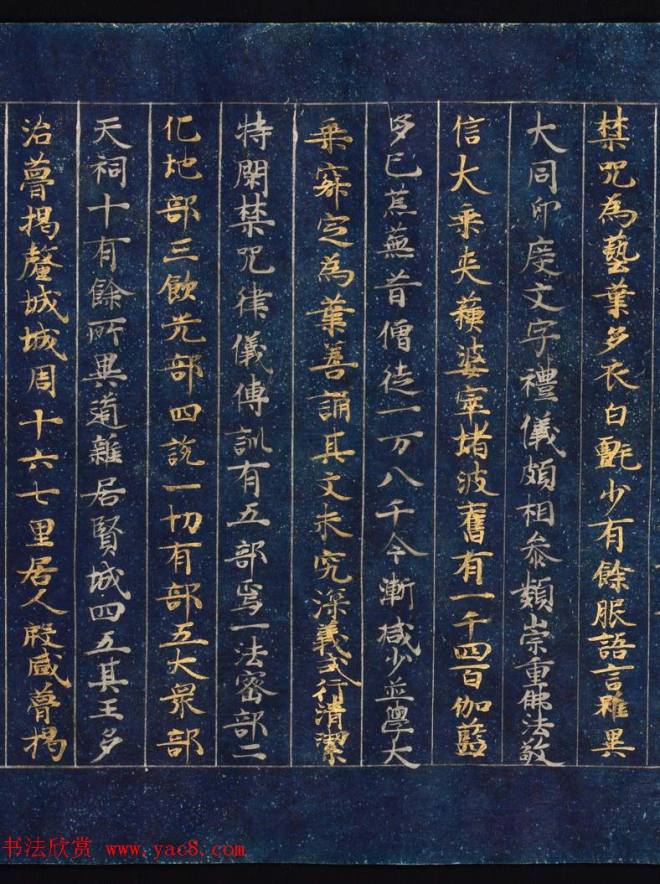 禁咒為藝葉多衣白氎少有餘服語言雖異
大同印度文字禮儀頗相叅類崇重佛法敬
信大乘夾蘇婆窣堵波舊有一千四百伽藍
多已蕉蕪昔僧徒一万八千今漸減少並學大
乘寂定為葉善誦其文未究深義戒行清潔
特閑禁咒律儀傳訓有五部焉一法密部二
化地部三飲光部四說一切有部五大眾部
天祠十有餘所異道雜居賢城四五其王多
治瞢揭釐城城周十六七里居人殷盛瞢揭
书法欣赏 www.yac8.com